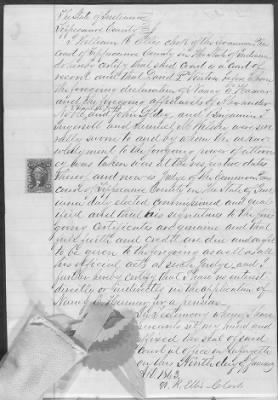 The State of Indiana
Tippecanoe County
I William K. Ellis Clerk of the Common Pleas
Court of Tippecanoe County in the State of Indiana
do hereby certify that said Court is a Court of
record and that David P. Vinton before whom
the foregoing declaration of Nancy
and the foregoing affidavits of Alexander
and John and Benjamin
and Samuel were
sworn and by whom the
to the foregoing power of attorney
was taken was at the respective dates
thereof and now is Judge of the Common Pleas
Court of Tippecanoe County in the State of
duly elected commissioned and qualified
and that his signatures to the
going certificates are genuine and that
full faith and credit are due and ought
to be given to the foregoing as well as all
his official acts as such Judge, and I
further certify that I have no interest
directly or indirectly in the application of
Nancy for a pension
In testimony whereof I have
hereunto set my hand and
affixed the seal of said
Court at office in Lafayette
on this Ninth day of January
A.D. 1863
W. K. Ellis Clerk